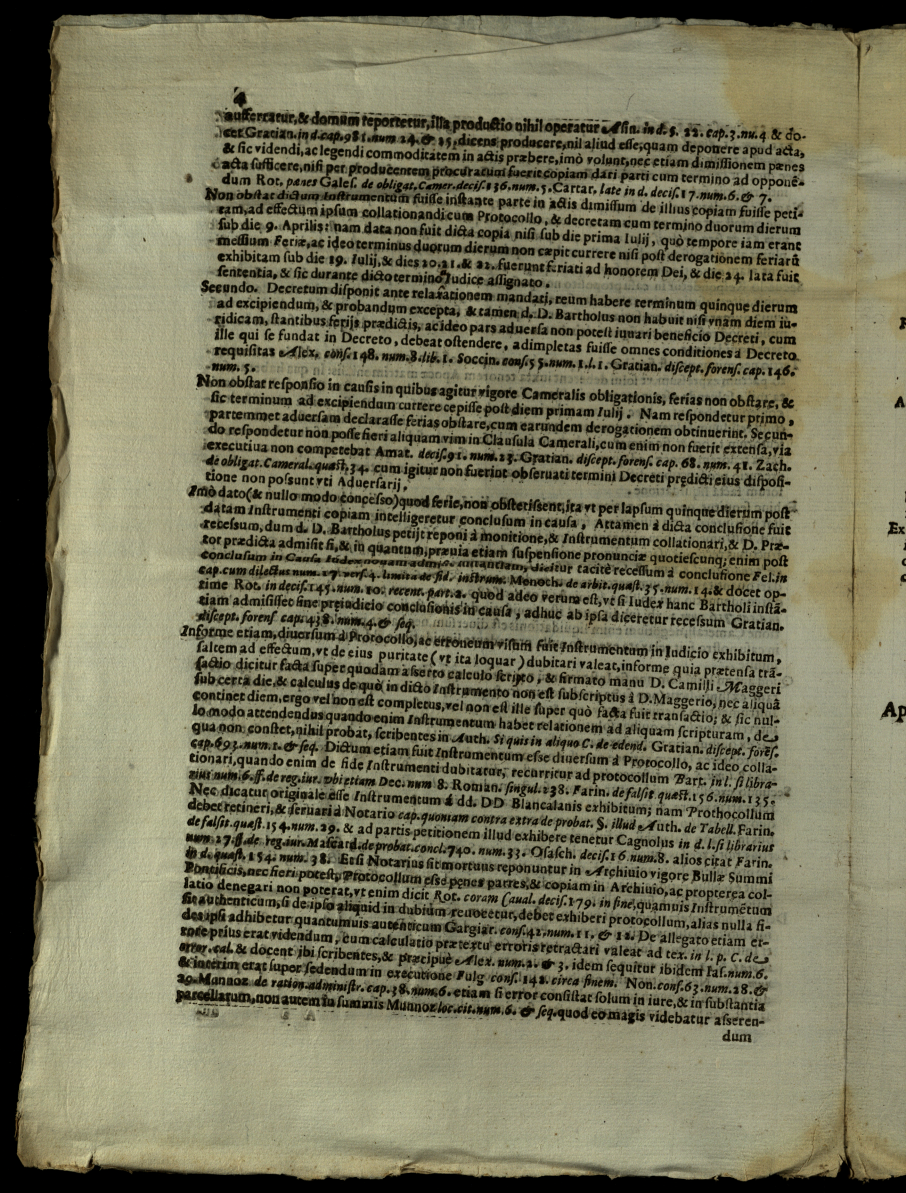 4
auffercatur, & domum reportetur, illa productio nihil operatur Asin. in d. §. 22. cap. 3. nu. 4 & do-
cet Gratian. in d. cap. 981. num 24. & 25. dicens producere, nil aliud esse, quam deponere apud acta,
& sic videndi, ac legendi commoditatem in actis præbere, imò volunt, nec etiam dimissionem pænes
acta sufficere, nisi per producentem procuratum fuerit copiam dari parti cum termino ad opponē-
dum Rot. pænes Gales. de obligat. Camer. decis. 136. num. 5. Cartar. late in d. decis. 17. num. 6. & 7.
Non obstat dictum Instrumentum fuisse instante parte in actis dimissum de illius copiam fuisse peti-
tam, ad effectum ipsum collationandi cum Protocollo, & decretam cum termino duorum dierum
sub die 9. Aprilis: nam data non fuit dicta copia nisi sub die prima Iulij, quò tempore iam erant
messium Feriæ, ac ideo terminus duorum dierum non cæpit currere nisi post derogationem feriarū
exhibitam sub die 19. Iulij, & dies 20. 21. & 22. fuerunt feriati ad honorem Dei, & die 24. lata fuit
sententia, & sic durante dicto termino à Iudice assignato.
Secundo. Decretum disponit ante relaxationem mandati, reum habere terminum quinque dierum
ad excipiendum, & probandum excepta, & tamen d. D. Bartholus non habuit nisi vnam diem iu-
ridicam, stantibus ferijs prædictis, ac ideo pars aduersa non potest iuuari beneficio Decreti, cum
ille qui se fundat in Decreto, debeat ostendere, adimpletas fuisse omnes conditiones à Decreto
requisitas Alex. cons. 148. num. 8. lib. 1. Soccin. cons. 55. num. 1. l. 1. Gratian. discept. forens. cap. 146.
num. 5.
Non obstat responsio in causis in quibus agitur vigore Cameralis obligationis, ferias non obstare, &
sic terminum ad excipiendum currere cepisse post diem primam Iulij. Nam respondetur primo,
partemmet aduersam declarasse ferias obstare, cum earundem derogationem obtinuerint. Secun-
do respondetur non posse fieri aliquam vim in Clausula Camerali, cum enim non fuerit extensa, via
executiua non competebat Amat. decis. 91. num. 23. Gratian. discept. forens. cap. 68. num. 41. Zach.
de obligat. Cameral. quæst. 34. cum igitur non fuerint obseruati termini Decreti prędicti eius disposi-
tione non possunt vti Aduersarij.
Imò dato (& nullo modo concesso) quod ferie, non obstetissent, ita vt per lapsum quinque dierum post
datam Instrumenti copiam intelligeretur conclusum in causa, Attamen à dicta conclusione fuit
recessum, dum d. D. Bartholus petijt reponi à monitione, & Instrumentum collationari, & D. Præ-
tor prædicta admisit si, & in quantum, prævia etiam suspensione pronunciæ quotiescunq; enim post
conclusum in Causa Iudex nouam admittit instantiam, dicitur tacitè recessum à conclusione Fel. in
cap. cum dilectus num. 17. vers. 4. limita de fid. instrum. Menoth. de arbit. quæst. 35. num. 14. & docet op-
time Rot. in decis. 145. num. 10. recent. part. 2. quod adeo verum est, vt si Iudex hanc Bartholi instā-
tiam admisisset sine preiudicio conclusionis in causa, adhuc ab ipsa diceretur recessum Gratian.
discept. forens cap. 438. num. 4. & seq.
Informe etiam, diuersum à Protocollo, ac erroneum visum fuit Instrumentum in Iudicio exhibitum,
saltem ad effectum, vt de eius puritate (vt ita loquar) dubitari valeat, informe quia prætensa trā-
sactio dicitur facta super quodam asserto calculo scripto, & firmato manu D. Camilli Maggeri
sub certa die, & calculus de quò in dicto Instrumento non est subscriptus à D. Maggerio, nec aliquā
continet diem, ergo vel non est completus, vel non est ille super quò facta fuit transactio; & sic nul-
lo modo attendendus quando enim Instrumentum habet relationem ad aliquam scripturam, de
qua non constet, nihil probat, scribentes in Auth. Si quis in aliquo C. de edend. Gratian. discept. forēs.
cap. 693. num. 1. & seq. Dictum etiam fuit Instrumentum esse diuersum à Protocollo, ac ideo colla-
tionari, quando enim de fide Instrumenti dubitatur, recurritur ad protocollum Bart. in l. si libra-
rius num. 6. ff. de reg. iur. vbi etiam Dec. num 8. Roman. singul. 138. Farin. de falsit quæst. 156. num. 135.
Nec dicatur originale esse Instrumentum à dd. DD Blancalanis exhibitum; nam Prothocollum
debet retineri, & seruari à Notario cap. quoniam contra extra de probat. §. illud Auth. de Tabell. Farin.
de falsit. quæst. 154. num. 29. & ad partis petitionem illud exhibere tenetur Cagnolus in d. l. si librarius
num 27. ff. de reg. iur. Mascard. de probat. concl. 740. num. 33. Osasch. decis. 16. num. 8. alios citat Farin.
in d. quæst. 154. num. 38. Et si Notarius sit mortuus reponuntur in Archiuio vigore Bullæ Summi
Pontificis, nec fieri potest, Protocollum esse penes partes, & copiam in Archiuio, ac propterea col-
latio denegari non poterat, vt enim dicit Rot. coram Caual. decis. 179. in fine, quamuis Instrumētum
sit authenticum, si de ipso aliquid in dubium reuocetur, debet exhiberi protocollum, alias nulla fi-
des ipsi adhibetur quantumuis autenticum Gargiar. cons. 42. num. 11. & 12. De allegato etiam er-
rore prius erat videndum, cum calculatio prætextu erroris retractari valeat ad tex. in l. p. C. de
error. cal. & docent ibi scribentes, & præcipuè Alex. num. 2. & 3. idem sequitur ibidem Ias. num. 6.
& interim erat super sedendum in executione Fulg cons. 142. circa finem. Non. cons. 63. num. 28. &
29. Munnoz de ration. administr. cap. 38. num. 6. etiam si error consistat solum in iure, & in substantia
parcellarum, non autem in summis Munnoz loc. cit. num. 6. & seq. quod eo magis videbatur asseren-
dum
Ex
Ap